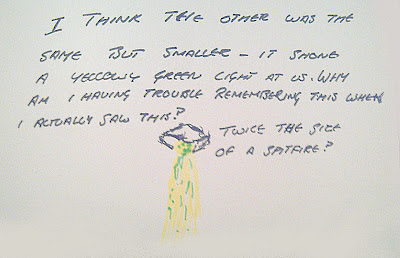 I THINK THE OTHER WAS THE
SAME BUT SMALLER - IT SHONE
A YELLOWY GREEN LIGHT AT US. WHY
AM I HAVING TROUBLE REMEMBERING THIS WHEN
I ACTUALLY SAW THIS?
TWICE THE SIZE
OF A SPITFIRE?